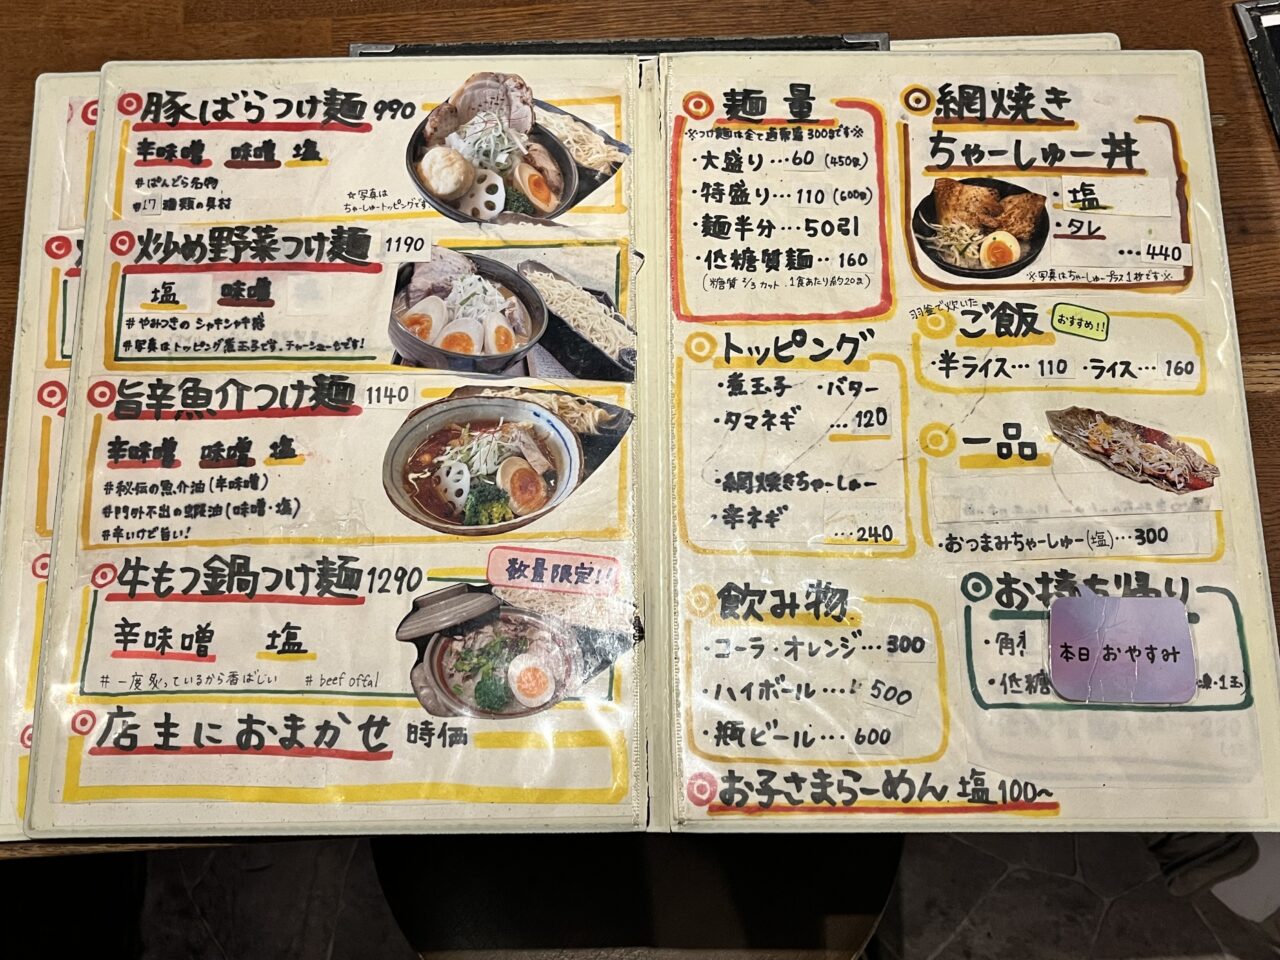 豚ばらつけ麺 990
辛味噌 味噌 塩
#ぱんどら名物
#17種類の具材
☆写真は
ちゃーしゅートッピングです
炒め野菜つけ麺 1190
塩 味噌
#やみつきのシャキシャキ感
#写真はトッピング煮玉子です。チャーシューもです!
旨辛魚介つけ麺 1140
辛味噌 味噌 塩
#秘伝の魚介油(辛味噌)
#門外不出の蝦油(味噌・塩)
#辛いけど旨い!
牛もつ鍋つけ麺 1290
数量限定!!
辛味噌 塩
#一度炙っているから香ばしい #beef offal
店主におまかせ 時価
麺量
※つけ麺は全て通常量300gです※
・大盛り…60(450g)
・特盛り…110(600g)
・麺半分…50引
・低糖質麺‥160
(糖質2/3カット、1食あたり約20g)
トッピング
・煮玉子 ・バター
・タマネギ …120
・網焼きちゃーしゅー
・辛ネギ
…240
飲み物
・コーラ・オレンジ…300
・ハイボール…500
・瓶ビール…600
お子さまらーめん 塩100~
網焼き
ちゃーしゅー丼
・塩
・タレ
…440
※写真はちゃーしゅープラス1枚です※
羽釜で炊いた
ご飯
おすすめ!!
・半ライス…110 ・ライス…160
一品
・おつまみちゃーしゅー(塩)…300
お持ち帰り
・角
・低糖
本日おやすみ
・1玉)